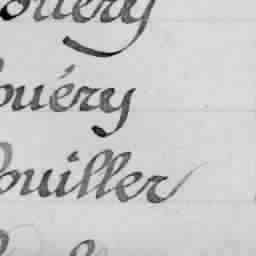 ouéry
ouéry
ouiller